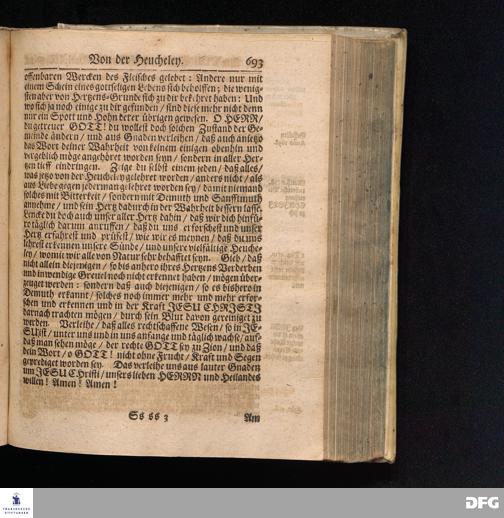 Von der Heucheley. 693
offenbaren Wercken des Fleisches gelebet: Andere nur mit
einem Schein eines gottseligen Lebens sich beholffen; die wenig-
sten aber von Hertzens-Grunde sich zu dir bekehret haben: Und
wo sich ja noch einige zu dir gefunden / sind diese mehr nicht denn
nur ein Spott und Hohn derer übrigen gewesen. O HERR/
du getreuer GOTT! du wollest doch solchen Zustand der Ge-
meinde ändern / und aus Gnaden verleihen / daß auch anietzo
das Wort deiner Wahrheit von keinem einigen obenhin und
vergeblich möge angehöret worden seyn / sondern in aller Her-
tzen tieff eindringen. Zeige du selbst einem jeden / daß alles /
was jetzo von der Heucheley gelehret worden / anders nicht / als
aus Liebe gegen jederman gelehret worden sey / damit niemand
solches mit Bitterkeit / sondern mit Demuth und Sanfftmuth
annehme / und sein Hertz dadurch in der Wahrheit bessern lasse.
Lencke du doch auch unser aller Hertz dahin / daß wir dich hinfü-
ro täglich darum anruffen / daß du uns erforschest und unser
Hertz erfahrest und prüfest / wie wir es meynen / daß du uns
lehrest erkennen unsere Sünde / und unsere vielfältige Heuche-
ley / womit wir alle von Natur sehr behafftet seyn. Gieb / daß
nicht allein diejenigen / so bis anhero ihres Hertzens Verderben
und inwendige Greuel noch nicht erkennet haben / mögen über-
zeuget werden: sondern daß auch diejenigen / so es bishero in
Demuth erkannt / solches noch immer mehr und mehr erfor-
schen und erkennen und in der Kraft JESU CHRISTI
darnach trachten mögen / durch sein Blut davon gereiniget zu
werden. Verleihe / daß alles rechtschaffene Wesen / so in JE-
SU ist / unter uns und in uns anfange und täglich wachse / auf-
daß man sehen möge / der rechte GOTT sey zu Zion / und daß
dein Wort / o GOTT! nicht ohne Frucht / Kraft und Segen
geprediget worden sey. Das verleihe uns aus lauter Gnaden
um JESU CHristi / unsers lieben HERRN und Heilandes
willen! Amen! Amen!
Ss ss 3 Am
FRANCKESCHE
STIFTUNGEN
DFG